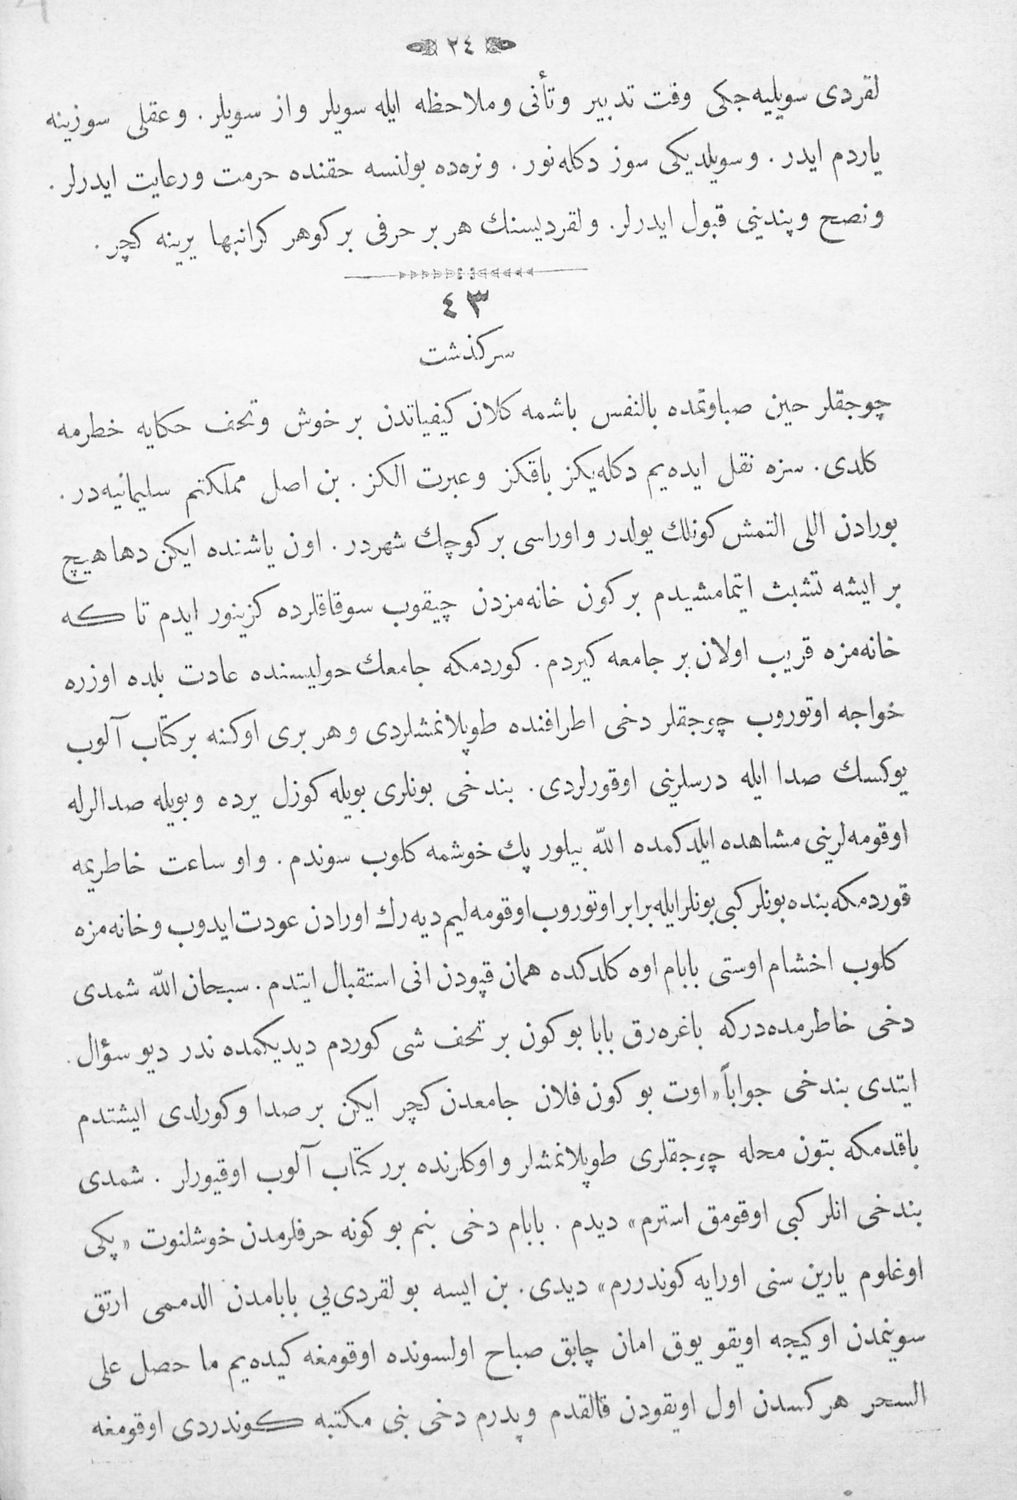 ٢٤
لقردی سویلیه‌جکی وقت تدبیر و تأنی و ملاحظه ایله سویلر و از سویلر. و عقلی سوزینه
یاردم ایدر. و سویلدیکی سوز دکله‌نور. و نره‌ده بولنسه حقنده حرمت و رعایت ایدرلر.
و نصح و پندینی قبول ایدرلر. و لقردیسنك هر بر حرفی بر کوهر کرانبها یرینه کچر.
٤٣
سرکذشت
چوجقلر حین صباوتمده بالنفس باشمه کلان کیفیاتدن بر خوش و تحف حکایه خطرمه
کلدی. سزه نقل ایده‌یم دکله‌یکز باقکز و عبرت الکز. بن اصل مملکتم سلیمانیه‌در.
بورادن اللی التمش کونلك یولدر و اوراسی بر کوچك شهردر. اون یاشنده ایکن دها هیچ
بر ایشه تشبث ایتمامشیدم بر کون خانه‌مزدن چیقوب سوقاقلرده کزینور ایدم تا که
خانه‌مزه قریب اولان بر جامعه کیردم. کوردمکه جامعك حولیسنده عادت بلده اوزره
خواجه اوتوروب چوجقلر دخی اطرافنده طوپلانمشلردی و هر بری اوکنه بر کتاب آلوب
یوکسك صدا ایله درسلرینی اوقورلردی. بندخی بونلری بویله کوزل یرده و بویله صدالرله
اوقومه‌لرینی مشاهده ایلدکمده الله بیلور پك خوشمه کلوب سوندم. و او ساعت خاطریمه
قوردمکه بنده بونلر کبی بونلر ایله برابر اوتوروب اوقومه‌لیم دیه‌رك اورادن عودت ایدوب و خانه‌مزه
کلوب اخشام اوستی بابام اوه کلدکده همان قپودن انی استقبال ایتدم. سبحان الله شمدی
دخی خاطرمده‌درکه باغره‌رق بابا بو کون بر تحف شی کوردم دیدیکمده ندر دیو سؤال.
ایتدی بندخی جواباً «اوت بو کون فلان جامعدن کچر ایکن بر صدا و کورلدی ایشتدم
باقدمکه بتون محله چوجقلری طوپلانمشلر و اوکلرنده بر کتاب آلوب اوقیورلر. شمدی
بندخی انلر کبی اوقومق استرم» دیدم. بابام دخی بنم بو کونه حرفلرمدن خوشلنوت «پکی
اوغلوم یارین سنی اورایه کوندررم» دیدی. بن ایسه بو لقردی‌یی بابامدن الدممی ارتق
سوینمدن او کیجه اویقو یوق امان چابق صباح اولسونده اوقومغه کیده‌یم ما حصل علی
السحر هرکسدن اول اویقودن قالقدم و پدرم دخی بنی مکتبه کوندردی اوقومغه